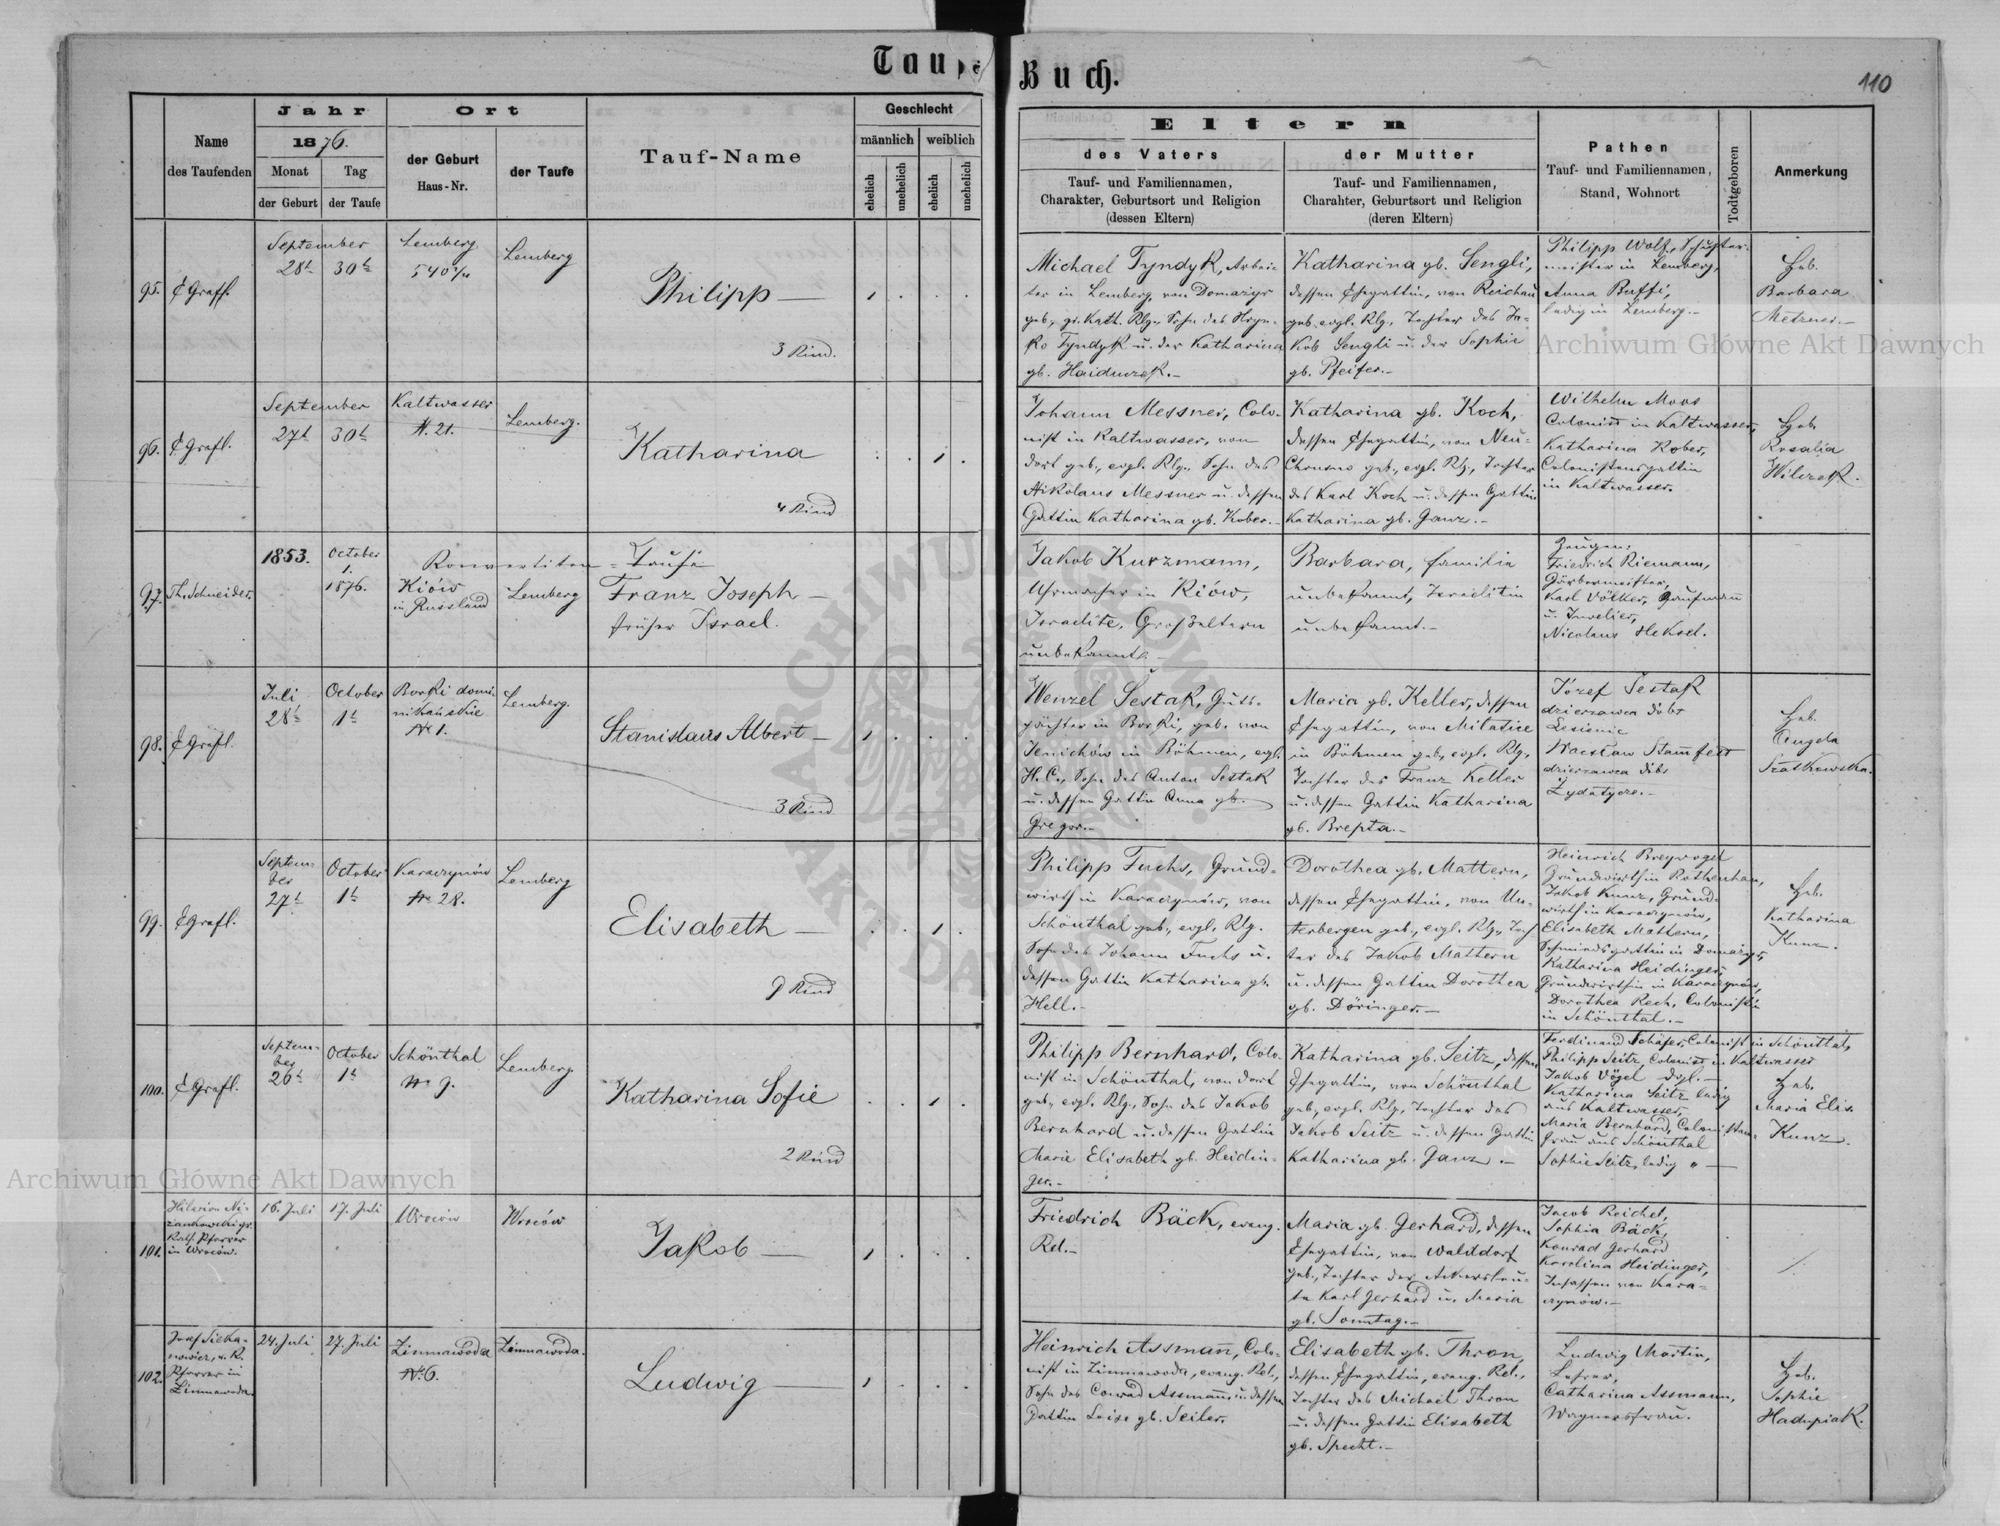 Tauf-
Buch.
110
Name
des Taufenden
Jahr
1876.
Monat
der Geburt
Tag
der Taufe
Ort
der Geburt
Haus-Nr.
der Taufe
Tauf-Name
Geschlecht
männlich
weiblich
ehelich
unehelich
ehelich
unehelich
Eltern
des Vaters
Tauf- und Familiennamen,
Charakter, Geburtsort und Religion
(dessen Eltern)
der Mutter
Tauf- und Familiennamen,
Charahter, Geburtsort und Religion
(deren Eltern)
Pathen
Tauf- und Familiennamen,
Stand, Wohnort
Todtgeboren
Anmerkung
95.
September
28t
30t
Lemberg
540 2/4
Lemberg
Philipp
3 Kind.
Michael Tyndyk, Arbei-
ter in Lemberg, von Domazyr
geb., gr. Kath. Rlg., Sohn des Hryn-
ko Tyndyk u. der Katharina
gb. Haiduczek.-
Katharina gb. Sengli,
dessen Ehegattin, von Reichau
geb. evgl. Rlg., Tochter des Ja-
kob Sengli u. der Sophie
gb. Pfeifer.-
Philipp Wolf, Schuster-
meister in Lemberg,
Anna Buffi,
ledig in Lemberg.-
Heb.
Barbara
Metzner.-
96.
September
27t
30t
Kaltwasser
N. 21.
Lemberg.
Katharina
4 Kind
Johann Messner, Colo-
nist in Kaltwasser, von
dort geb., evgl. Rlg., Sohn des
Nikolaus Messner u. dessen
Gattin Katharina gb. Kober.-
Katharina gb. Koch,
dessen Ehegattin, von Neu-
Chrusno geb., evgl. Rlg., Tochter
des Karl Koch u. dessen Gattin
Katharina gb. Ganz.-
Wilhelm Moos
Colonist in Kaltwasser,
Katharina Kober,
Colonistensgattin
in Kaltwasser.
Heb.
Rosalia
Wilczek.
97.
Th. Schneider.
1853.
October
1.
1876.
Konvertiten-Taufe
Kiów
in Russland
Lemberg
Franz Joseph
früher Israel.
Jakob Kurzmann,
Uhrmacher in Kiów,
Israelite, Großeltern
unbekannt.-
Barbara, Familie
unbekannt, Israelitin
unbekannt.-
Zeugen:
Friedrich Riemann,
Gärbermeister,
Karl Völker, Kaufmann
u. Juvelier,
Nicolaus Heksel.
98.
Juli
28t
October
1t
Borki domi-
nikańskie
No 1.
Lemberg.
Stanislaus Albert
3 Kind
Wenzel Sestak, Guts-
pächter in Borki, geb. von
Jenichów in Böhmen, evgl.
H.C., Sohn des Anton Sestak
u. dessen Gattin Anna gb.
Gregor.-
Maria gb. Keller, dessen
Ehegattin, von Militice
in Böhmen geb., evgl. Rlg.,
Tochter des Franz Keller
u. dessen Gattin Katharina
gb. Brepta.-
Józef Sestak
dzierzawca dóbr
Lesienic
Wacław Stamfest
dzierzawca dóbr
Żydatycze.-
Heb.
Angela
99.
Septem-
ber
27t
October
1t
Karaczynów
No 28.
Lemberg
Elisabeth
9 Kind
Philipp Fuchs, Grund-
wirth in Karaczynów, von
Schönthal geb., evgl. Rlg.
Sohn des Johann Fuchs u.
dessen Gattin Katharina gb.
Hell.-
Dorothea gb. Mattern,
dessen Ehegattin, von Un-
terbergen geb., evgl. Rlg., Toch
ter des Jakob Mattern
u. dessen Gattin Dorothea
gb. Döringer.-
Heinrich Breyvogel
Grundwirth in Rothenhan,
Jakob Kunz, Grund-
wirth in Karaczynów,
Elisabeth Mattern,
Schmiedsgattin in Domazyr,
Katharina Heidinger
Grundwirthin in Karaczynów,
Dorothea Rech, Colonistin
in Schönthal.-
Heb.
Katharina
Kunz.
100.
Septem-
ber
26t
October
1t
Schönthal
No 9.
Lemberg
Katharina Sofie
2 Kind
Philipp Bernhard, Colo-
nist in Schönthal, von dort
geb., evgl. Rlg., Sohn des Jakob
Bernhard u. dessen Gattin
Marie Elisabeth gb. Heidin-
ger.-
Katharina gb. Seitz, dessen
Ehegattin, von Schönthal
geb., evgl. Rlg., Tochter des
Jakob Seitz u. dessen Gattin
Katharina gb. Ganz.-
Ferdinand Schäfer, Colonist in Schönthal,
Philipp Seitz, Colonist in Kaltwasser
Jakob Vögel dtgl.-
Katharina Seitz ledig
aus Kaltwasser,
Maria Bernhard, Colonisten-
frau aus Schönthal
Sophie Seitz, ledig "
Heb.
Maria Elis.
Kunz.
101.
Hilarion Ni-
żankowski gr.
Kath. Pfarrer
in Wroców.
16. Juli
17. Juli
Wroców
Wroców
Jakob
Friedrich Bäck, evang.
Rel.-
Maria gb. Gerhard, dessen
Ehegattin, von Walddorf
geb., Tochter der Ackersleu-
te Karl Gerhard u. Maria
gb. Sonntag.-
Jacob Reichel,
Sophia Bäck,
Konrad Gerhard
Karolina Heidinger,
Insassen von Kara-
czynów.-
102.
Pfarrer in
Zimnawoda.
24. Juli
27. Juli
Zimnawoda
No 6.
Zimnawoda.
Ludwig
Heinrich Assmann, Colo-
nist in Zimnawoda, evang. Rel.,
Sohn des Conrad Assmann u. dessen
Gattin Loise gb. Seiler.
Elisabeth gb. Thron,
dessen Ehegattin, evang. Rel.,
Tochter des Michael Thron
u. dessen Gattin Elisabeth
gb. Specht.-
Ludwig Martin,
Lehrer,
Catharina Assmann,
Wagnersfrau.
Heb.
Sophie
Hadupiak.
Archiwum Główne Akt Dawnych
Archiwum Główne Akt Dawnych
ARCHIWUM GŁÓWNE AKT DAWNYCH